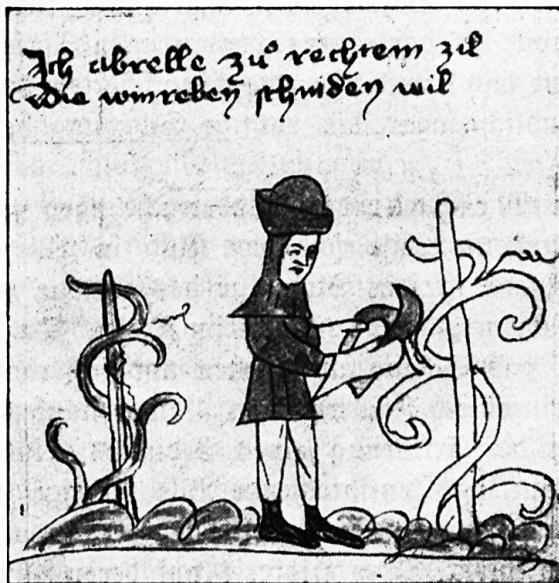 Ich abrelle zuͦ rechtem zil
Die winreben schniden wil